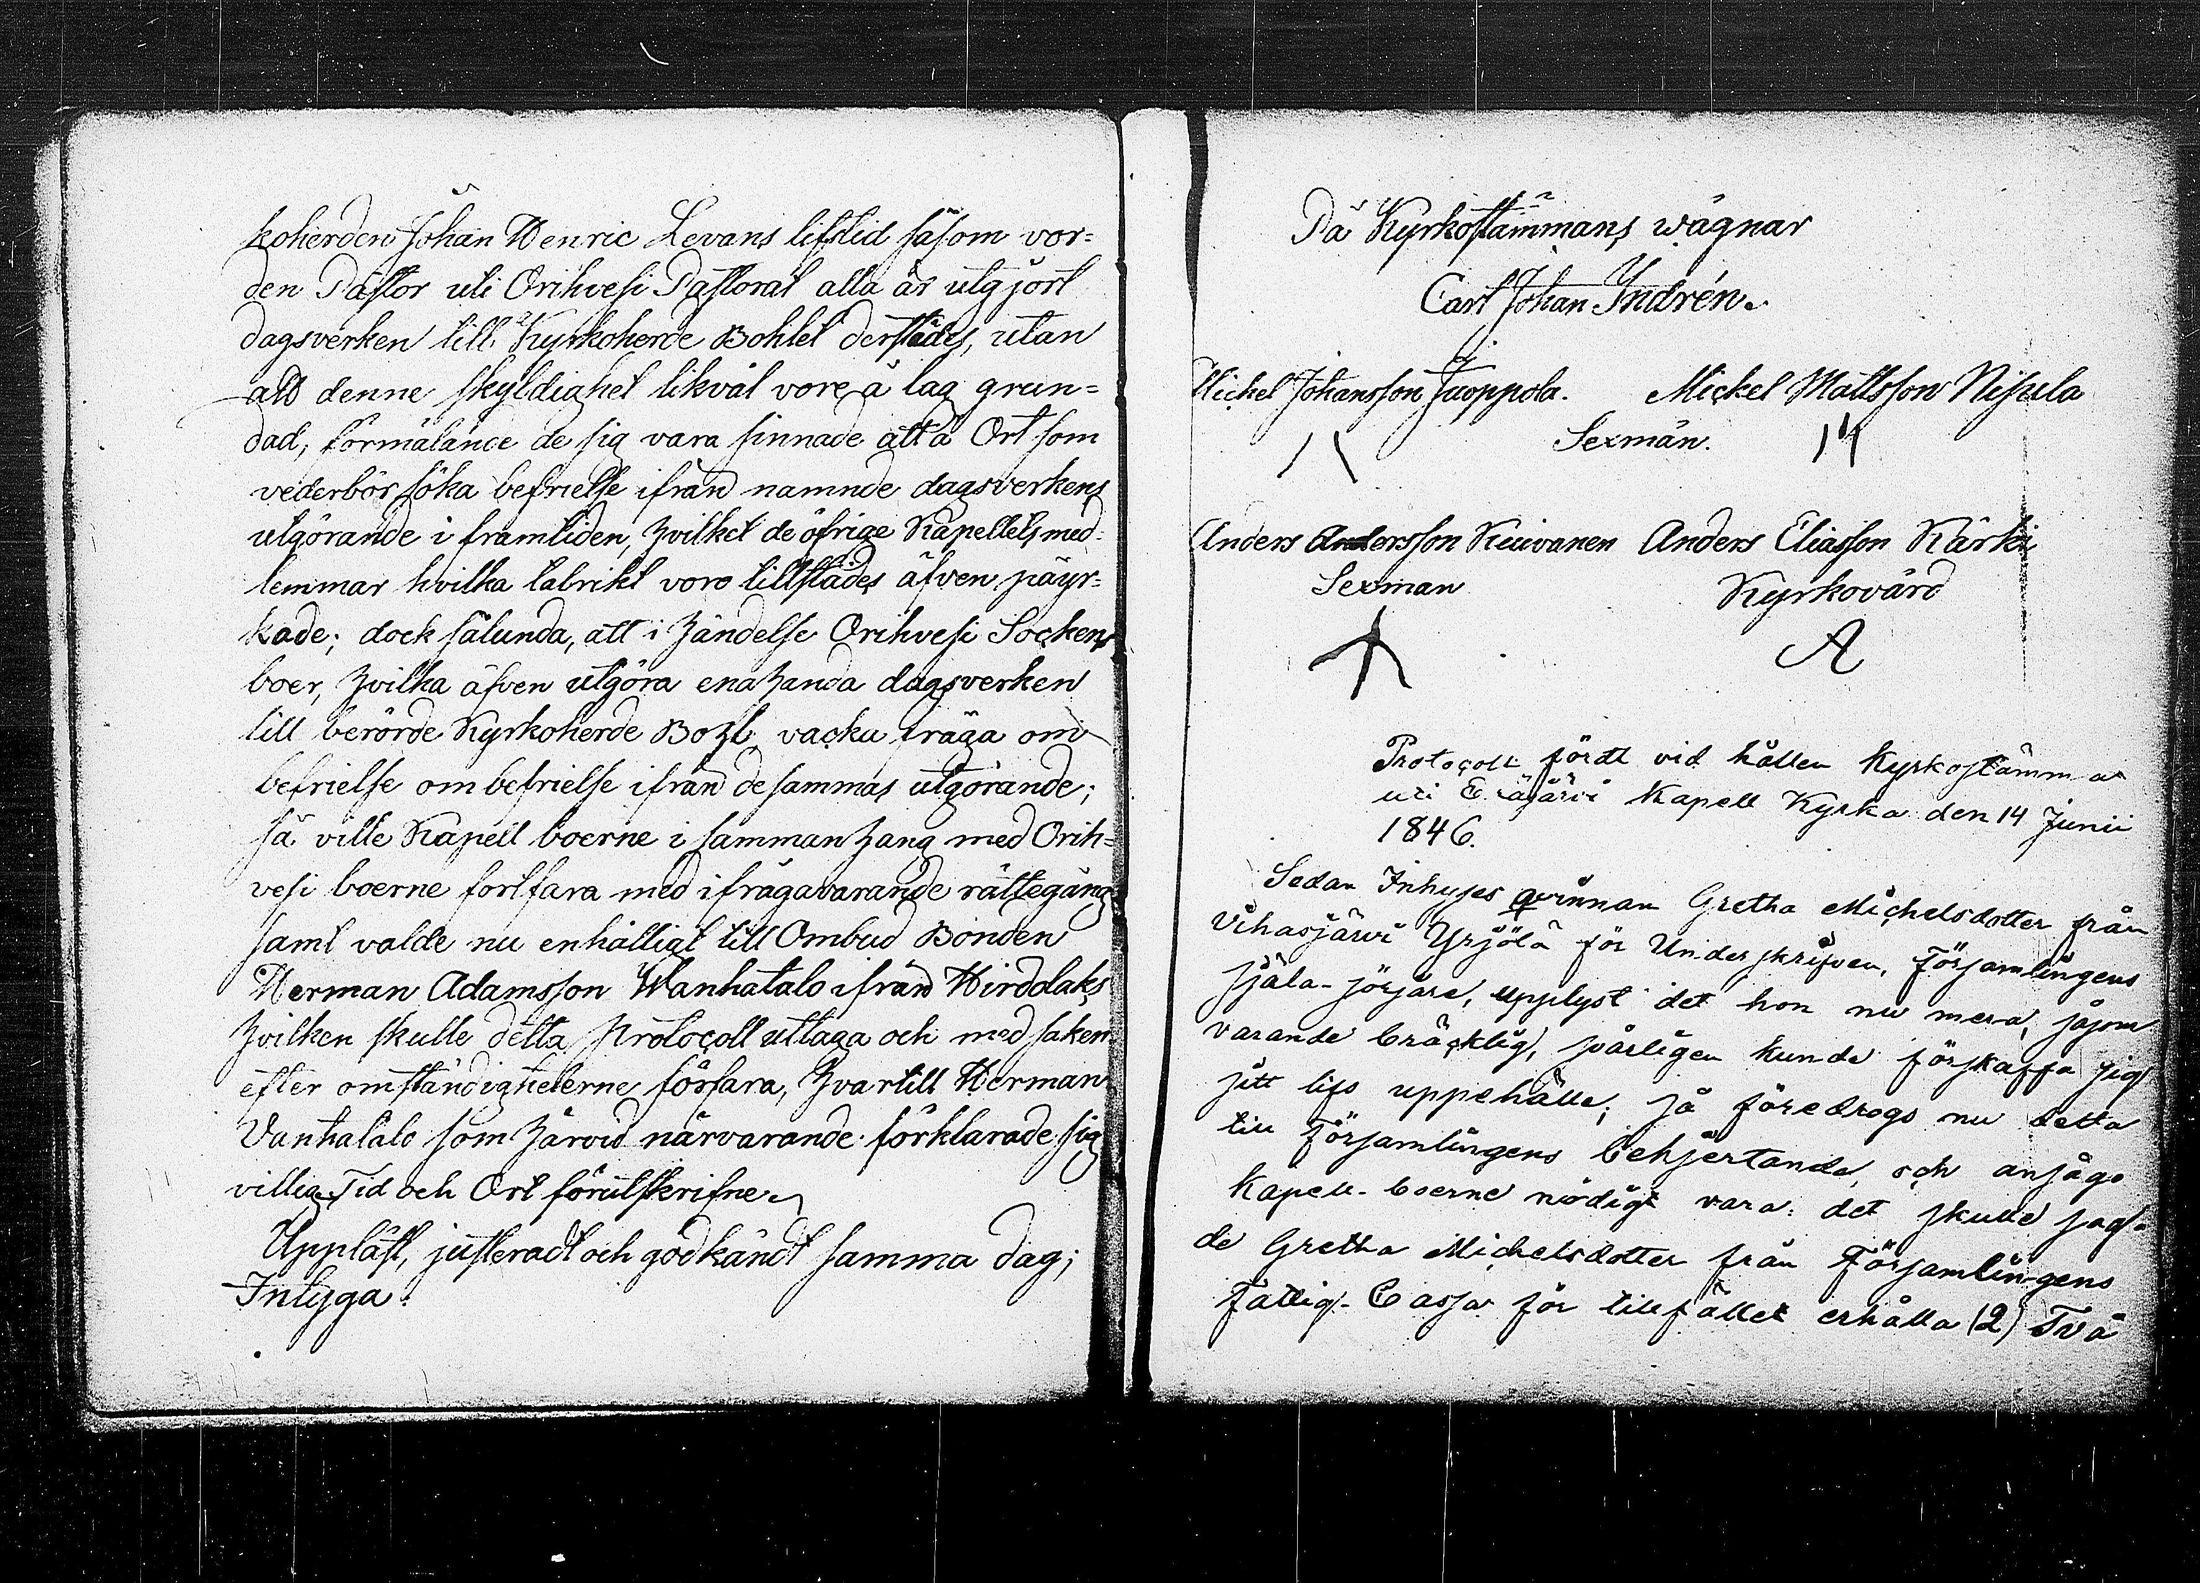 koherden Johan Henric Levans lifstid såsom vor=
den Pastor uti Orihvesi Pastorat alla år utgjort
dagsverken till Kyrkoherde Bohlet derstädes, utan
att denne skyldighet likväl vore å lag grun=
dad, förmälande de sig vara sinnade att å Ort som
vederbör söka befrielse ifrån namnde dagsverkens
utgörande i framtiden, hvilket de öfrige Kapellets med=
lemmar hvilka talrikt voro tillstädes äfven påyr=
kade; dock sålunda, att i händelse Orihvesi Sockens
boer, hvilka äfven utgöra enahanda dagsverken
till berörde Kyrkoherde Bohl vacku fråga om
befrielse om befrielse ifrån desammas utgörande;
så ville Kapell boerne i sammanhang med Orih=
vesi boerne fortfara med ifrågavarande rättegång
samt valde nu enhälligt till Ombud Bonden
Herman Adamsson Wanhatalo ifrån Hirddaks
hvilken skulle detta Protocoll uttaga och med saken
efter omständigheterne förfara, hvartill Herman
Vanhatalo som härvid närvarande förklarade sig
villig. Tid och Ort förutskrifne.
Uppläst, justeradt och godkändt samma dag;
Intyga.
På Kyrkostämmans wägnar
Carl Johan Indrén.
Mickel Johansson Juoppola. Mickel Mattsson Nisula
Sexmän.
Anders Andersson Kuivanen Anders Eliasson Kärki
Sexman Kyrkovärd
A
Protocoll fördt vid hållen Kyrkostämma
uti Eräjärvi Kapell Kyrka den 14 Junii
1846.
Sedan Inhyses qvinnan Gretha Michelsdotter från
Vihasjärvi Yrjölä för Underskrifven, Församlingens
själa-sörjare, upplyst det hon nu mera, såsom
varande bräcklig, svårligen kunde förskaffa sig
sitt lifs uppehälle; så föredrogs nu detta
till Församlingens behjertande, och ansågo
Kapell-boerne nödigt vara det skulle sag=
de Gretha Michelsdotter från Församlingens
Fattig-Cassa för tillfället erhålla (2) Två